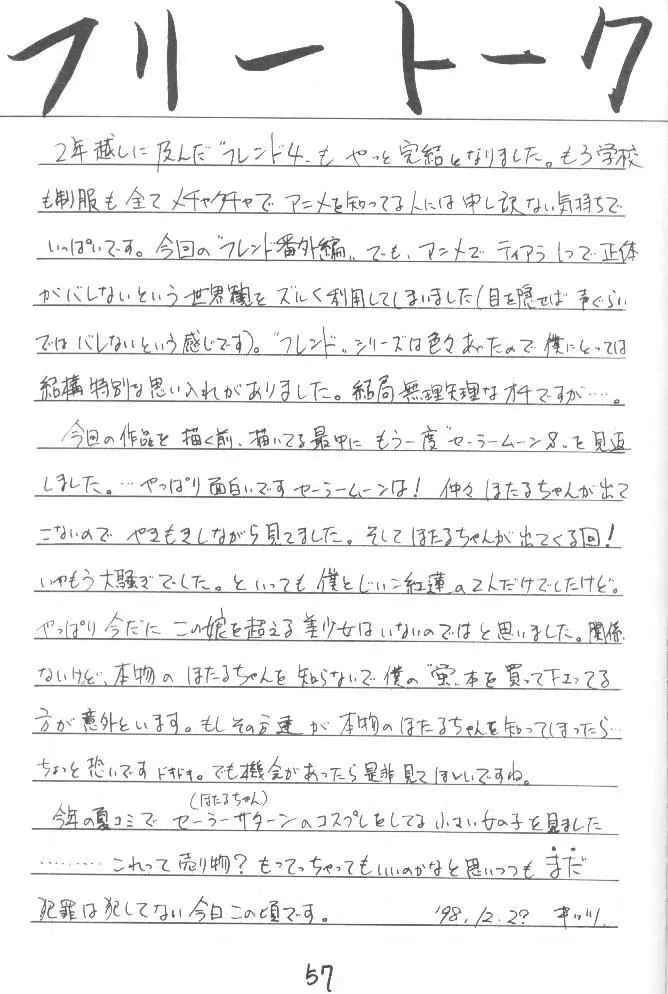 フリートーク
2年越しに及んだ〝フレンド4〟もやっと完結となりました。もう学校
も制服も全てメチャクチャでアニメを知ってる人には申し訳ない気持ちで
いっぱいです。今回の〝フレンド番外編〟でも、アニメでティアラ1つで正体
がバレないという世界観をズルく利用してしまいました(目を隠せば声ぐらい
ではバレないという感じです)。〝フレンド〟シリーズは色々あったので僕にとっては
結構特別な思い入れがありました。結局無理矢理なオチですが……。
今回の作品を描く前、描いてる最中にもう一度〝セーラームーンS〟を見返
しました。…やっぱり面白いですセーラームーンは!仲々ほたるちゃんが出て
こないのでやきもきしながら見てました。そしてほたるちゃんが出てくる回!
いやもう大騒ぎでした。といっても僕とじいこ紅蓮の2人だけでしたけど。
やっぱり今だにこの娘を超える美少女はいないのではと思いました。関係
ないけど、本物のほたるちゃんを知らないで僕の〝蛍〟本を買って下さってる
方が意外といます。もしその方達が本物のほたるちゃんを知ってしまったら…
ちょっと恐いですドキドキ。でも機会があったら是非見てほしいですね。
(ほたるちゃん)
今年の夏コミでセーラーサターンのコスプレをしてる小さい女の子を見ました
………これって売り物?もってっちゃってもいいのかなと思いつつもまだ
犯罪は犯してない今日この頃です。 '98.12.2? キッツ.
57